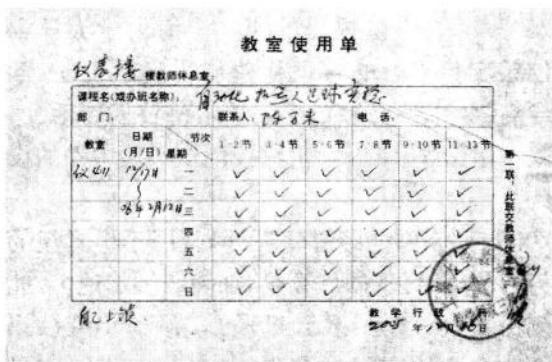 教室使用单
仪表楼 楼教师休息室
课程名(或办班名称): 自动化 机器人足球实验
部 门: 联系人: 电 话:
教室 日期(月/日) 星期 节次 1-2节 3-4节 5-6节 7-8节 9-10节 11-13节
仪411 12/17日 一 ✓ ✓ ✓ ✓ ✓ ✓
二 ✓ ✓ ✓ ✓ ✓ ✓
06年2月12日 三 ✓ ✓ ✓ ✓ ✓ ✓
四 ✓ ✓ ✓ ✓ ✓ ✓
五 ✓ ✓ ✓ ✓ ✓ ✓
六 ✓ ✓ ✓ ✓ ✓ ✓
日 ✓ ✓ ✓ ✓ ✓ ✓
第一联:此联交教师休息室
教 学 行 政 科
2005 年 月 日